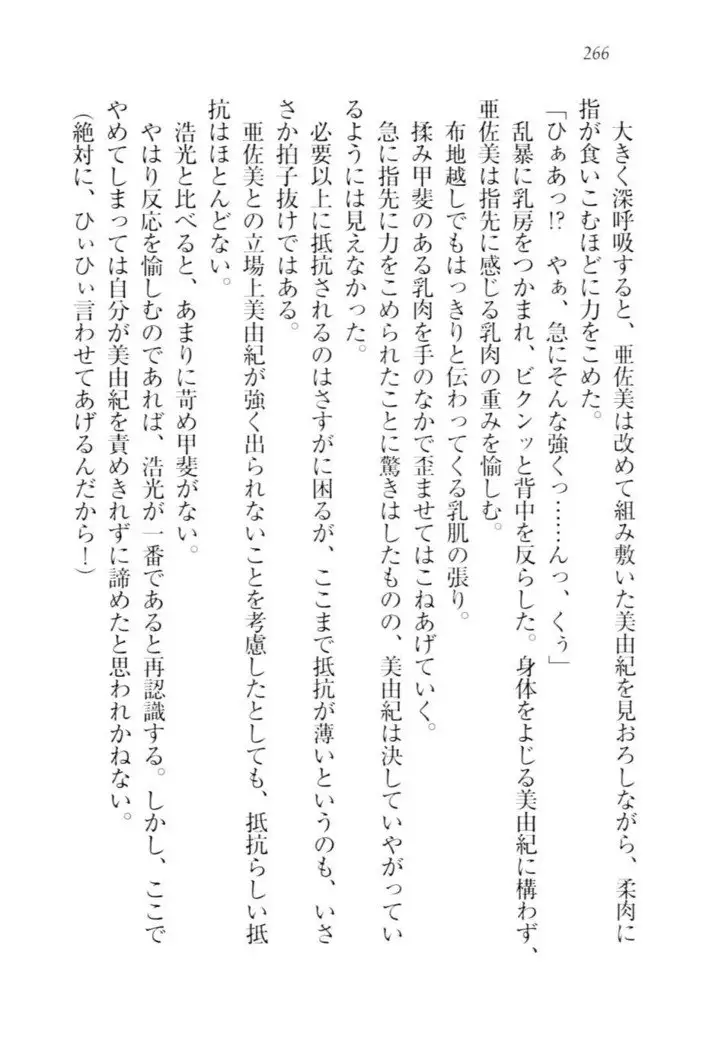 266
大きく深呼吸すると、亜佐美は改めて組み敷いた美由紀を見おろしながら、柔肉に
指が食いこむほどに力をこめた。
「ひぁあっ!?　やぁ、急にそんな強くっ……んっ、くぅ」
乱暴に乳房をつかまれ、ビクンッと背中を反らした。身体をよじる美由紀に構わず、
亜佐美は指先に感じる乳肉の重みを愉しむ。
布地越しでもはっきりと伝わってくる乳肌の張り。
揉み甲斐のある乳肉を手のなかで歪ませてはこねあげていく。
急に指先に力をこめられたことに驚きはしたものの、美由紀は決していやがってい
るようには見えなかった。
必要以上に抵抗されるのはさすがに困るが、ここまで抵抗が薄いというのも、いさ
さか拍子抜けではある。
亜佐美との立場上美由紀が強く出られないことを考慮したとしても、抵抗らしい抵
抗はほとんどない。
浩光と比べると、あまりに苛め甲斐がない。
やはり反応を愉しむのであれば、浩光が一番であると再認識する。しかし、ここで
やめてしまっては自分が美由紀を責めきれずに諦めたと思われかねない。
（絶対に、ひぃひぃ言わせてあげるんだから！）